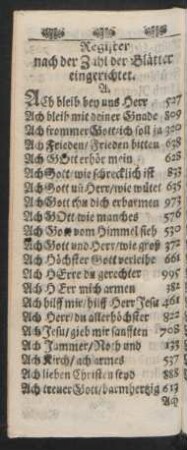 Register
nach der Zahl der Blätter
eingerichtet.
A.
ACh bleib bey uns Herr 527
Ach bleib mit deiner Gnade 809
Ach frommer Gott/ich soll ja 320
Ach Frieden/Frieden bitten 638
Ach GOtt erhör mein 628
Ach Gott/wie schrecklich ist 833
Ach Gott uñ Herr/wie wütet 635
Ach Gott thu dich erbarmen 973
Ach GOtt wie manches 576
Ach Gott vom Himmel sieh 530
Ach Gott und Herr/wie groß 372
Ach Höchster Gott verleihe 661
Ach HErre du gerechter 995
Ach HErr mich armen 382
Ach hilff mir/hilff Herr Jesu 461
Ach Herr/du allerhöchster 822
Ach Jesu/gieb mir sanfften 708
Ach Jammer/Noth und 133
Ach Kirch/ach armes 537
Ach lieben Christen seyd 888
Ach treuer Gott/barmhertzig 613
Ach